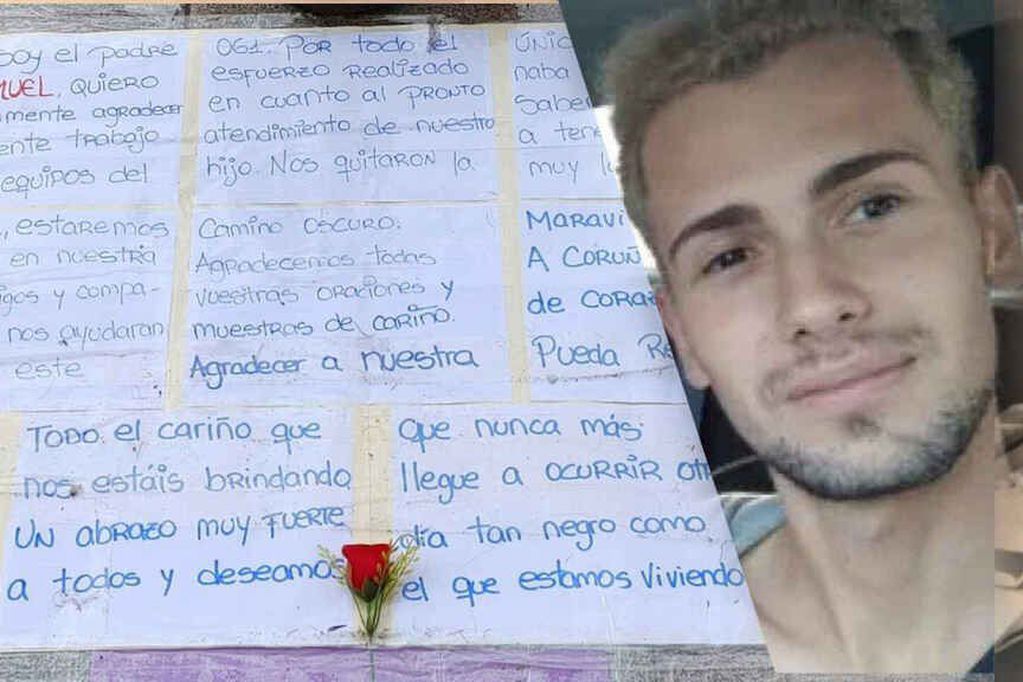 soy el padre
MUEL, QUIERO
mente agradecer
ente trabajo
equipos del
061. Por todo el
esfuerzo realizado
en cuanto al pronto
atendimiento de nuestro
hijo. Nos quitaron la
ÚNIC
naba
Saber
a tene
muy lu
., estaremos
en nuestra
igos y compa-
nos ayudaran
este
Camino oscuro.
Agradecemos todas
vuestras oraciones y
muestras de cariño.
Agradecer a nuestra
Maravi
A CORUÑ
de Coraz
Pueda Re
Todo el cariño que
nos estáis brindando
UN abrazo muy fuerte
a todos y deseamos
que nunca más
llegue a ocurrir otr
día tan negro como
el que estamos viviendo